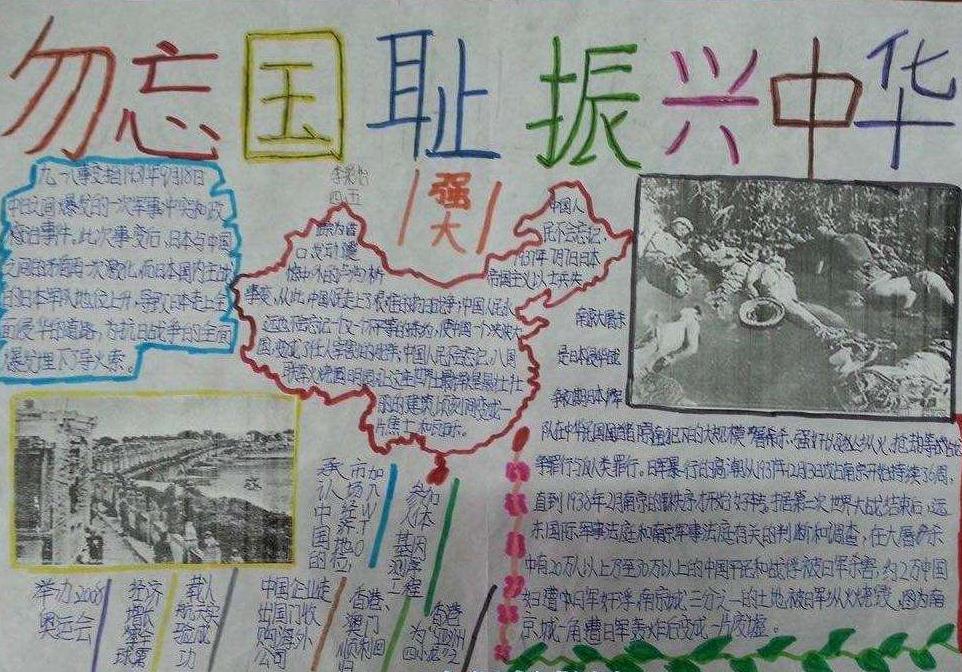 勿忘国耻 振兴中华
九一八事变指1931年9月18日
中日之间爆发的一次军事冲突和政
治事件。此次事变后，日本与中国
之间的矛盾再一次激化，而日本国内主战
的日本军队地位上升，导致日本走上全
面侵华的道路，为抗日战争的全面
爆发埋下导火索。
四五
强大
中国人
民不会忘记
1937年7月7日日本
帝国主义以士兵失
事变，从此，中国
远也不会忘记
国，变成了任人宰割的
中国人民不会忘记，八国
联军火烧圆明园，让这座世界上最
的建筑顷刻间变成一
片焦土和
南京大屠杀
是日本侵华战
争初期日本军
队在中华民国首都南京犯下的大规模屠杀、强奸以及纵火、抢劫等战
争罪行与反人类罪行。日军暴行的高潮从1937年12月13日攻占南京开始持续了6周，
直到1938年2月南京的秩序才开始好转。据第二次世界大战结束后，远
东国际军事法庭和南京军事法庭有关的判决和调查，在大屠杀
中有20万人以上乃至30万以上的中国平民和战俘被日军杀害，约2万中国
妇女遭日军奸淫，南京城三分之一的土地被日军纵火烧毁。图为南
京城一角遭日军轰炸后变成一片废墟。
承认中国的
市场经济地位
加入WTO
参加人体基因测序工程
举办2008奥运会
经济增长率全球第
载人航天实验成功
中国企业走出国门收购海外公司
香港、澳门顺利回归
香港为"亚洲四小龙"之